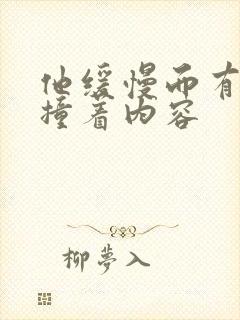 他缓慢而有
撞着内容
柳夢入